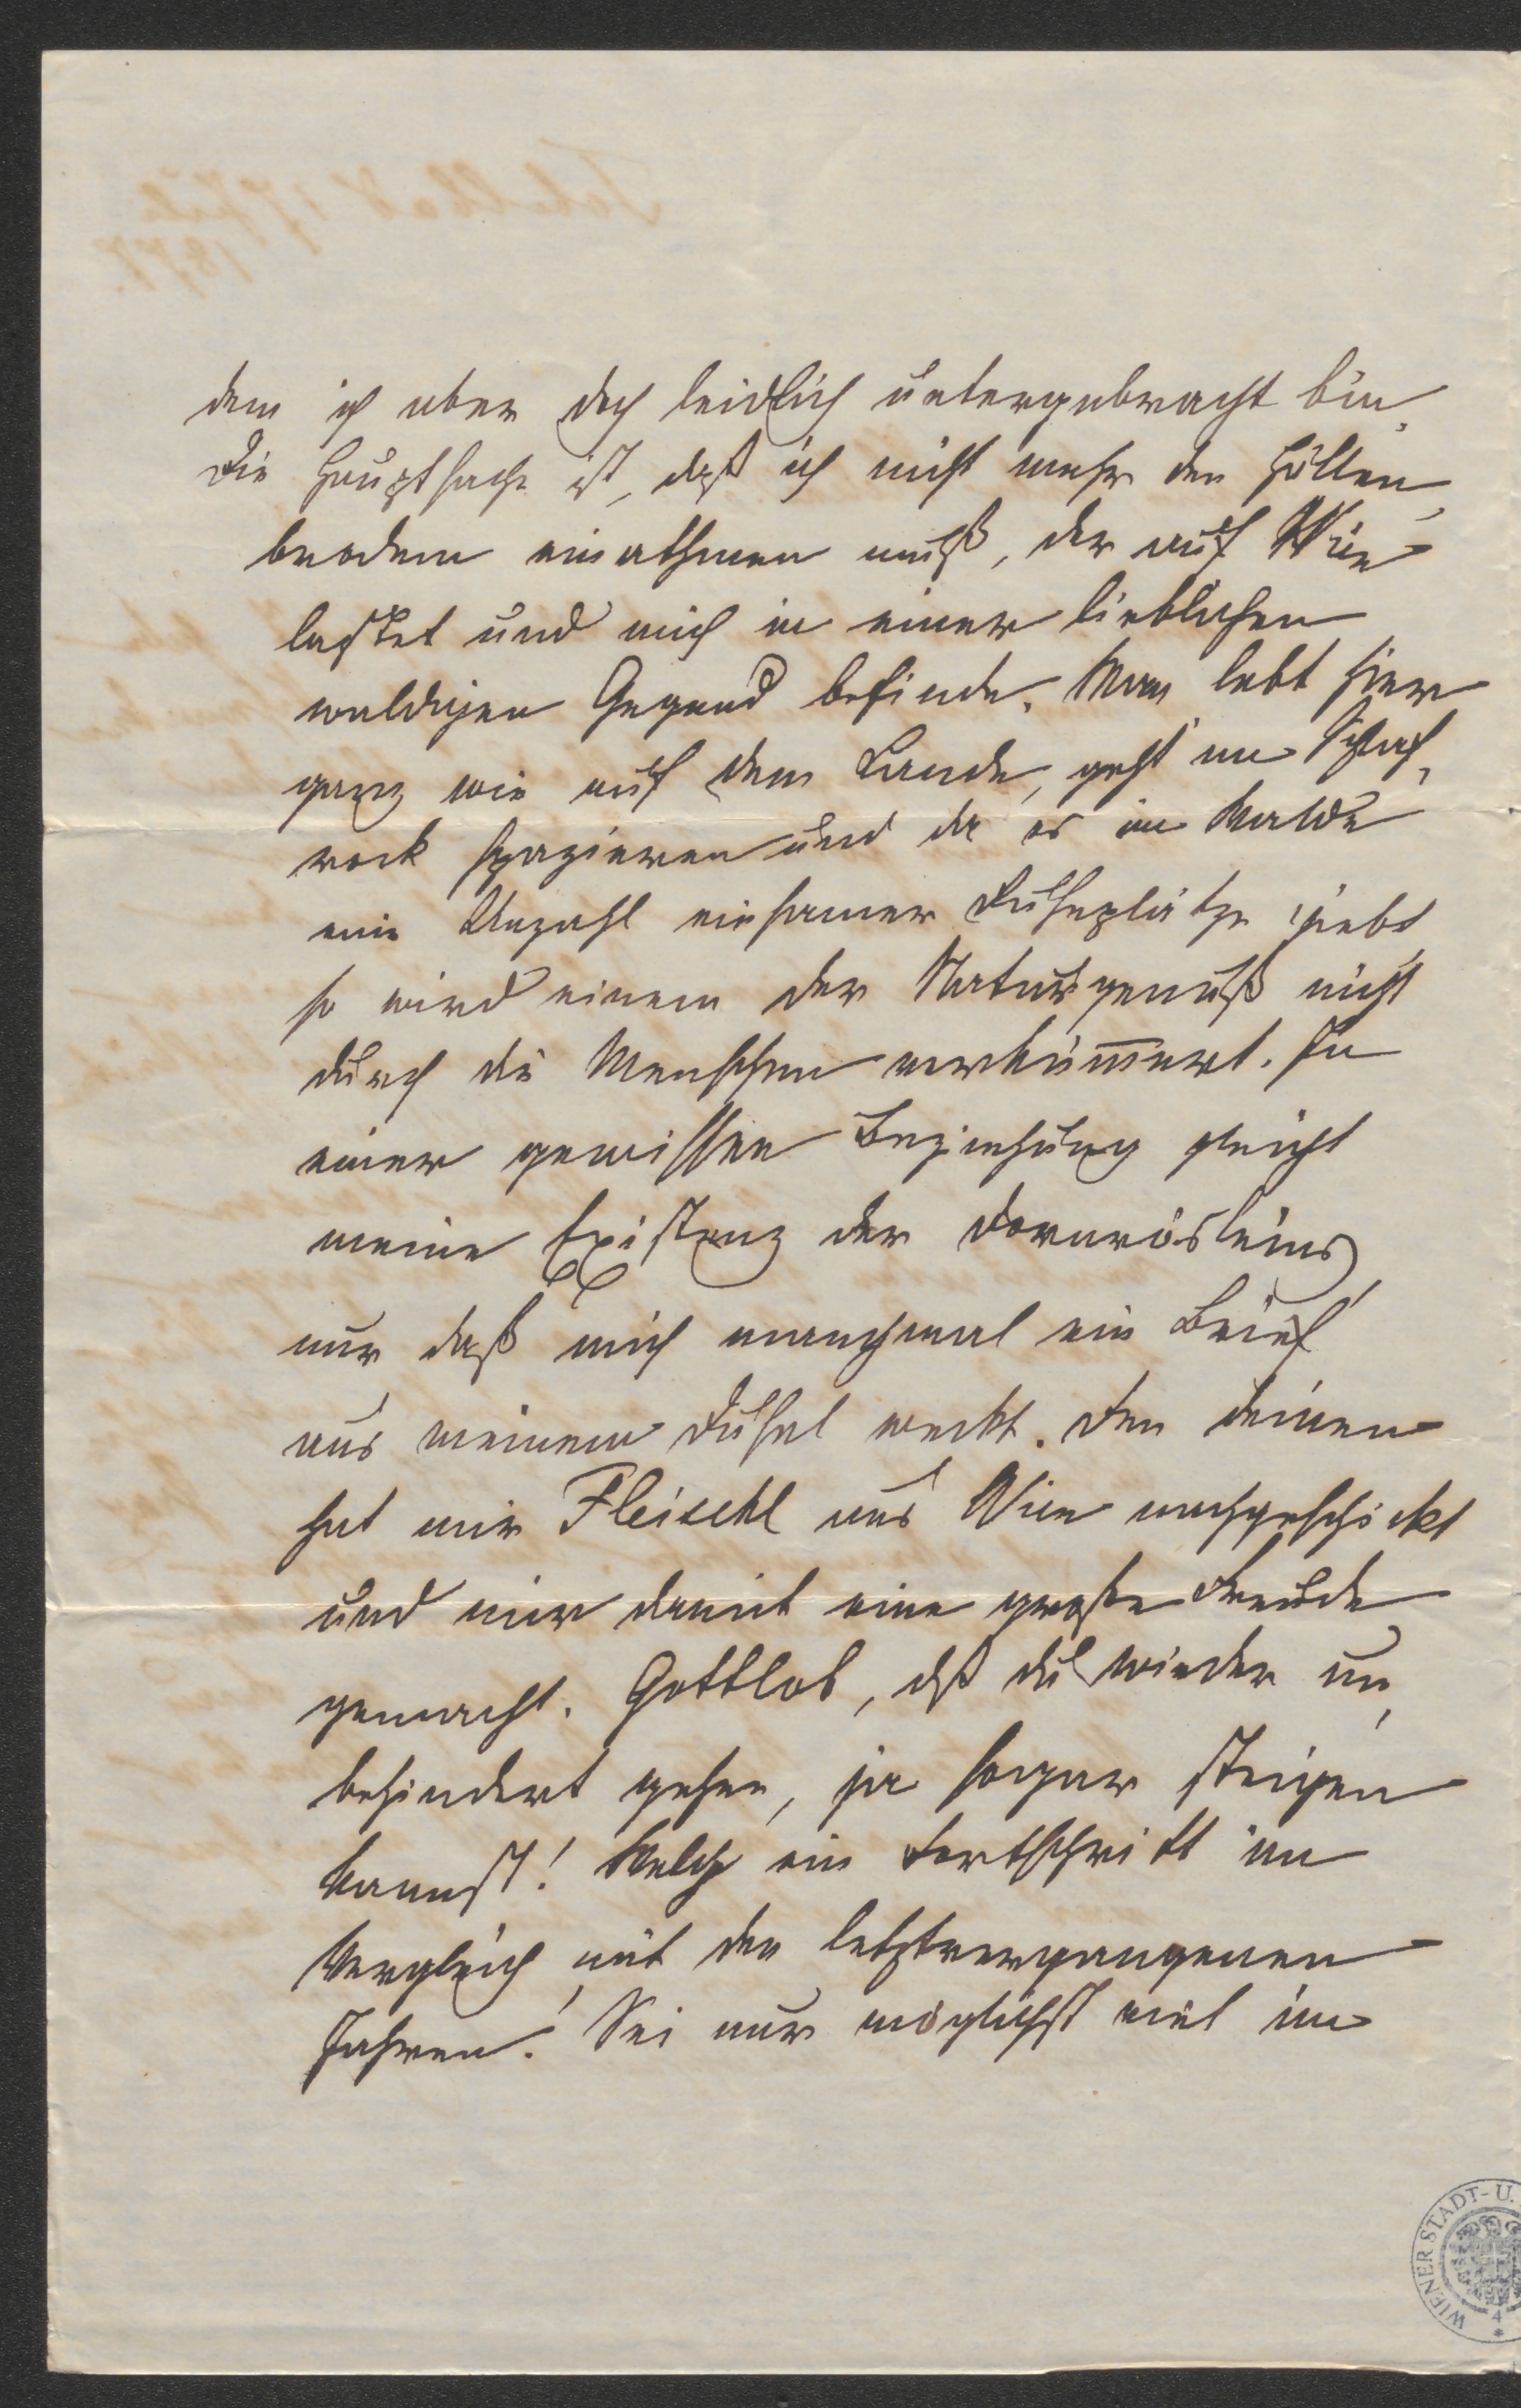 dem ich aber doch leidlich untergebracht bin.
Die Hauptsache ist, daß ich nicht mehr den Höllen-
brodem einathmen muß, der auf Wien
lastet und mich in einer lieblichen
waldigen Gegend befinde. Man lebt hier
ganz wie auf dem Lande, geht im Schlaf-
rock spazieren und da es im Walde
eine Unzahl einsamer Ruheplätze giebt,
so wird einem der Naturgenuß nicht
durch die Menschen verkümmert. In
einer gewissen Beziehung gleicht
meine Existenz der Dornrösleins,
nur daß mich manchmal ein Brief
aus meinem Dusel weckt. Den Deinen
hat mir Fleischl aus Wien nachgeschickt
und mir damit eine große Freude
gemacht. Gottlob, daß du wieder un-
behindert gehen, ja sogar steigen
kannst! Welch ein Fortschritt im
Vergleich mit den letztvergangenen
Jahren! Sei nur möglichst viel im
WIENER STADT-U.
4